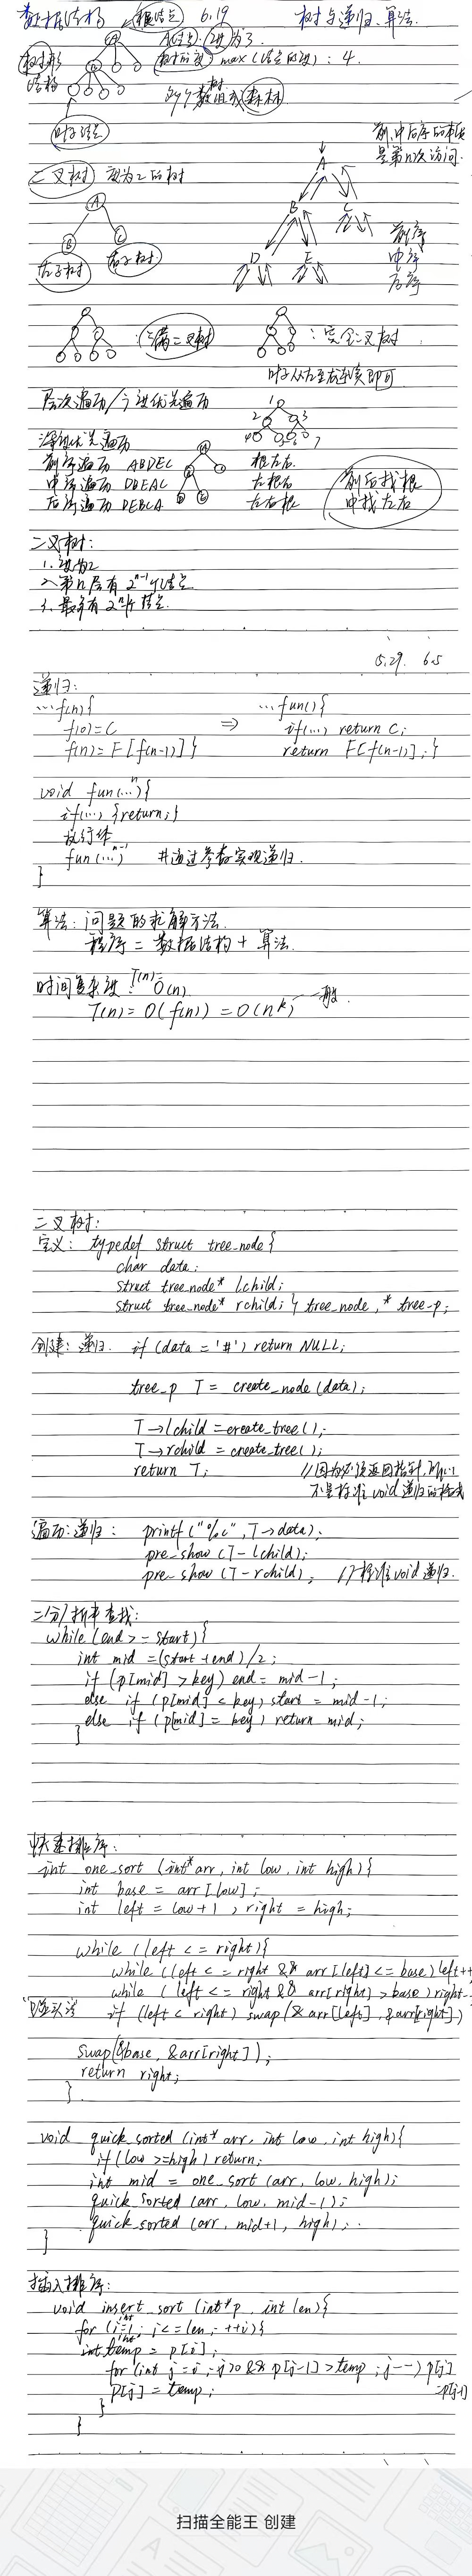 数据结构 根结点 6.19 树与递归.算法.
A A结点:度为3.
树形结构 树的度 max(结点的度): 4.
多个树组成森林
叶子结点
前.中.后序的本质是第n次访问.
二叉树 度为2的树
A
B C
左子树 右子树
A
B C
D E
前序
中序
后序
:满二叉树
:完全二叉树.
叶子从左至右连续即可
层次遍历/广度优先遍历
1
2 3
4 5 6 7
深度优先遍历
前序遍历 ABDEC 根左右
中序遍历 DBEAC 左根右
后序遍历 DEBCA 左右根
前后找根
中找左右
二叉树:
1.度为2
2.第n层有2^n-1个结点
3.最多有2^n-1个结点.
5.29. 6.5
递归:
…f(n){ …fun(){
f(0)=C ⇒ if(…) return C;
f(n)=F[f(n-1)]} return F[f(n-1)];}
void fun(…n){
if(…) {return;}
执行体
fun(…n-1) 并通过参数实现递归.
}
算法: 问题的求解方法.
程序 = 数据结构 + 算法.
时间复杂度: T(n)=O(n)
T(n) = O(f(n)) = O(n^k) 一般.
二叉树:
定义: typedef struct tree_node{
char data;
struct tree_node* lchild;
struct tree_node* rchild;} tree_node,* tree_p;
创建: 递归. if (data = '#') return NULL;
tree_p T = create_node(data);
T→lchild = create_tree();
T→rchild = create_tree();
return T; //因为必须返回指针,所以
不是标准void递归的格式
遍历:递归: printf("%c",T→data);
pre_show(T-lchild);
pre_show(T-rchild); //标准void递归.
二分/折半查找:
while(end >= start){
int mid =(start+end)/2;
if (p[mid] > key) end = mid-1;
else if (p[mid] < key) start = mid-1;
else if (p[mid] = key) return mid;
}
快速排序:
int one_sort (int* arr, int low, int high){
int base = arr[low];
int left = low+1, right = high;
while (left <= right){
while (left <= right && arr[left] <= base) left++
while (left <= right && arr[right] > base) right--
if (left < right) swap(&arr[left], &arr[right])
swap(&base, &arr[right]);
return right;
}
void quick_sorted (int* arr, int low, int high){
if(low >=high) return;
int mid = one_sort (arr, low, high);
quick_sorted (arr, low, mid-1);
quick_sorted (arr, mid+1, high);
}
插入排序:
void insert_sort (int*p, int len){
for (int i=1; i<=len; ++i){
int temp = p[i];
for(int j=i; j>0 && p[j-1] > temp; j--) p[j]
=p[j-1]
p[j] = temp;
}
}
扫描全能王 创建